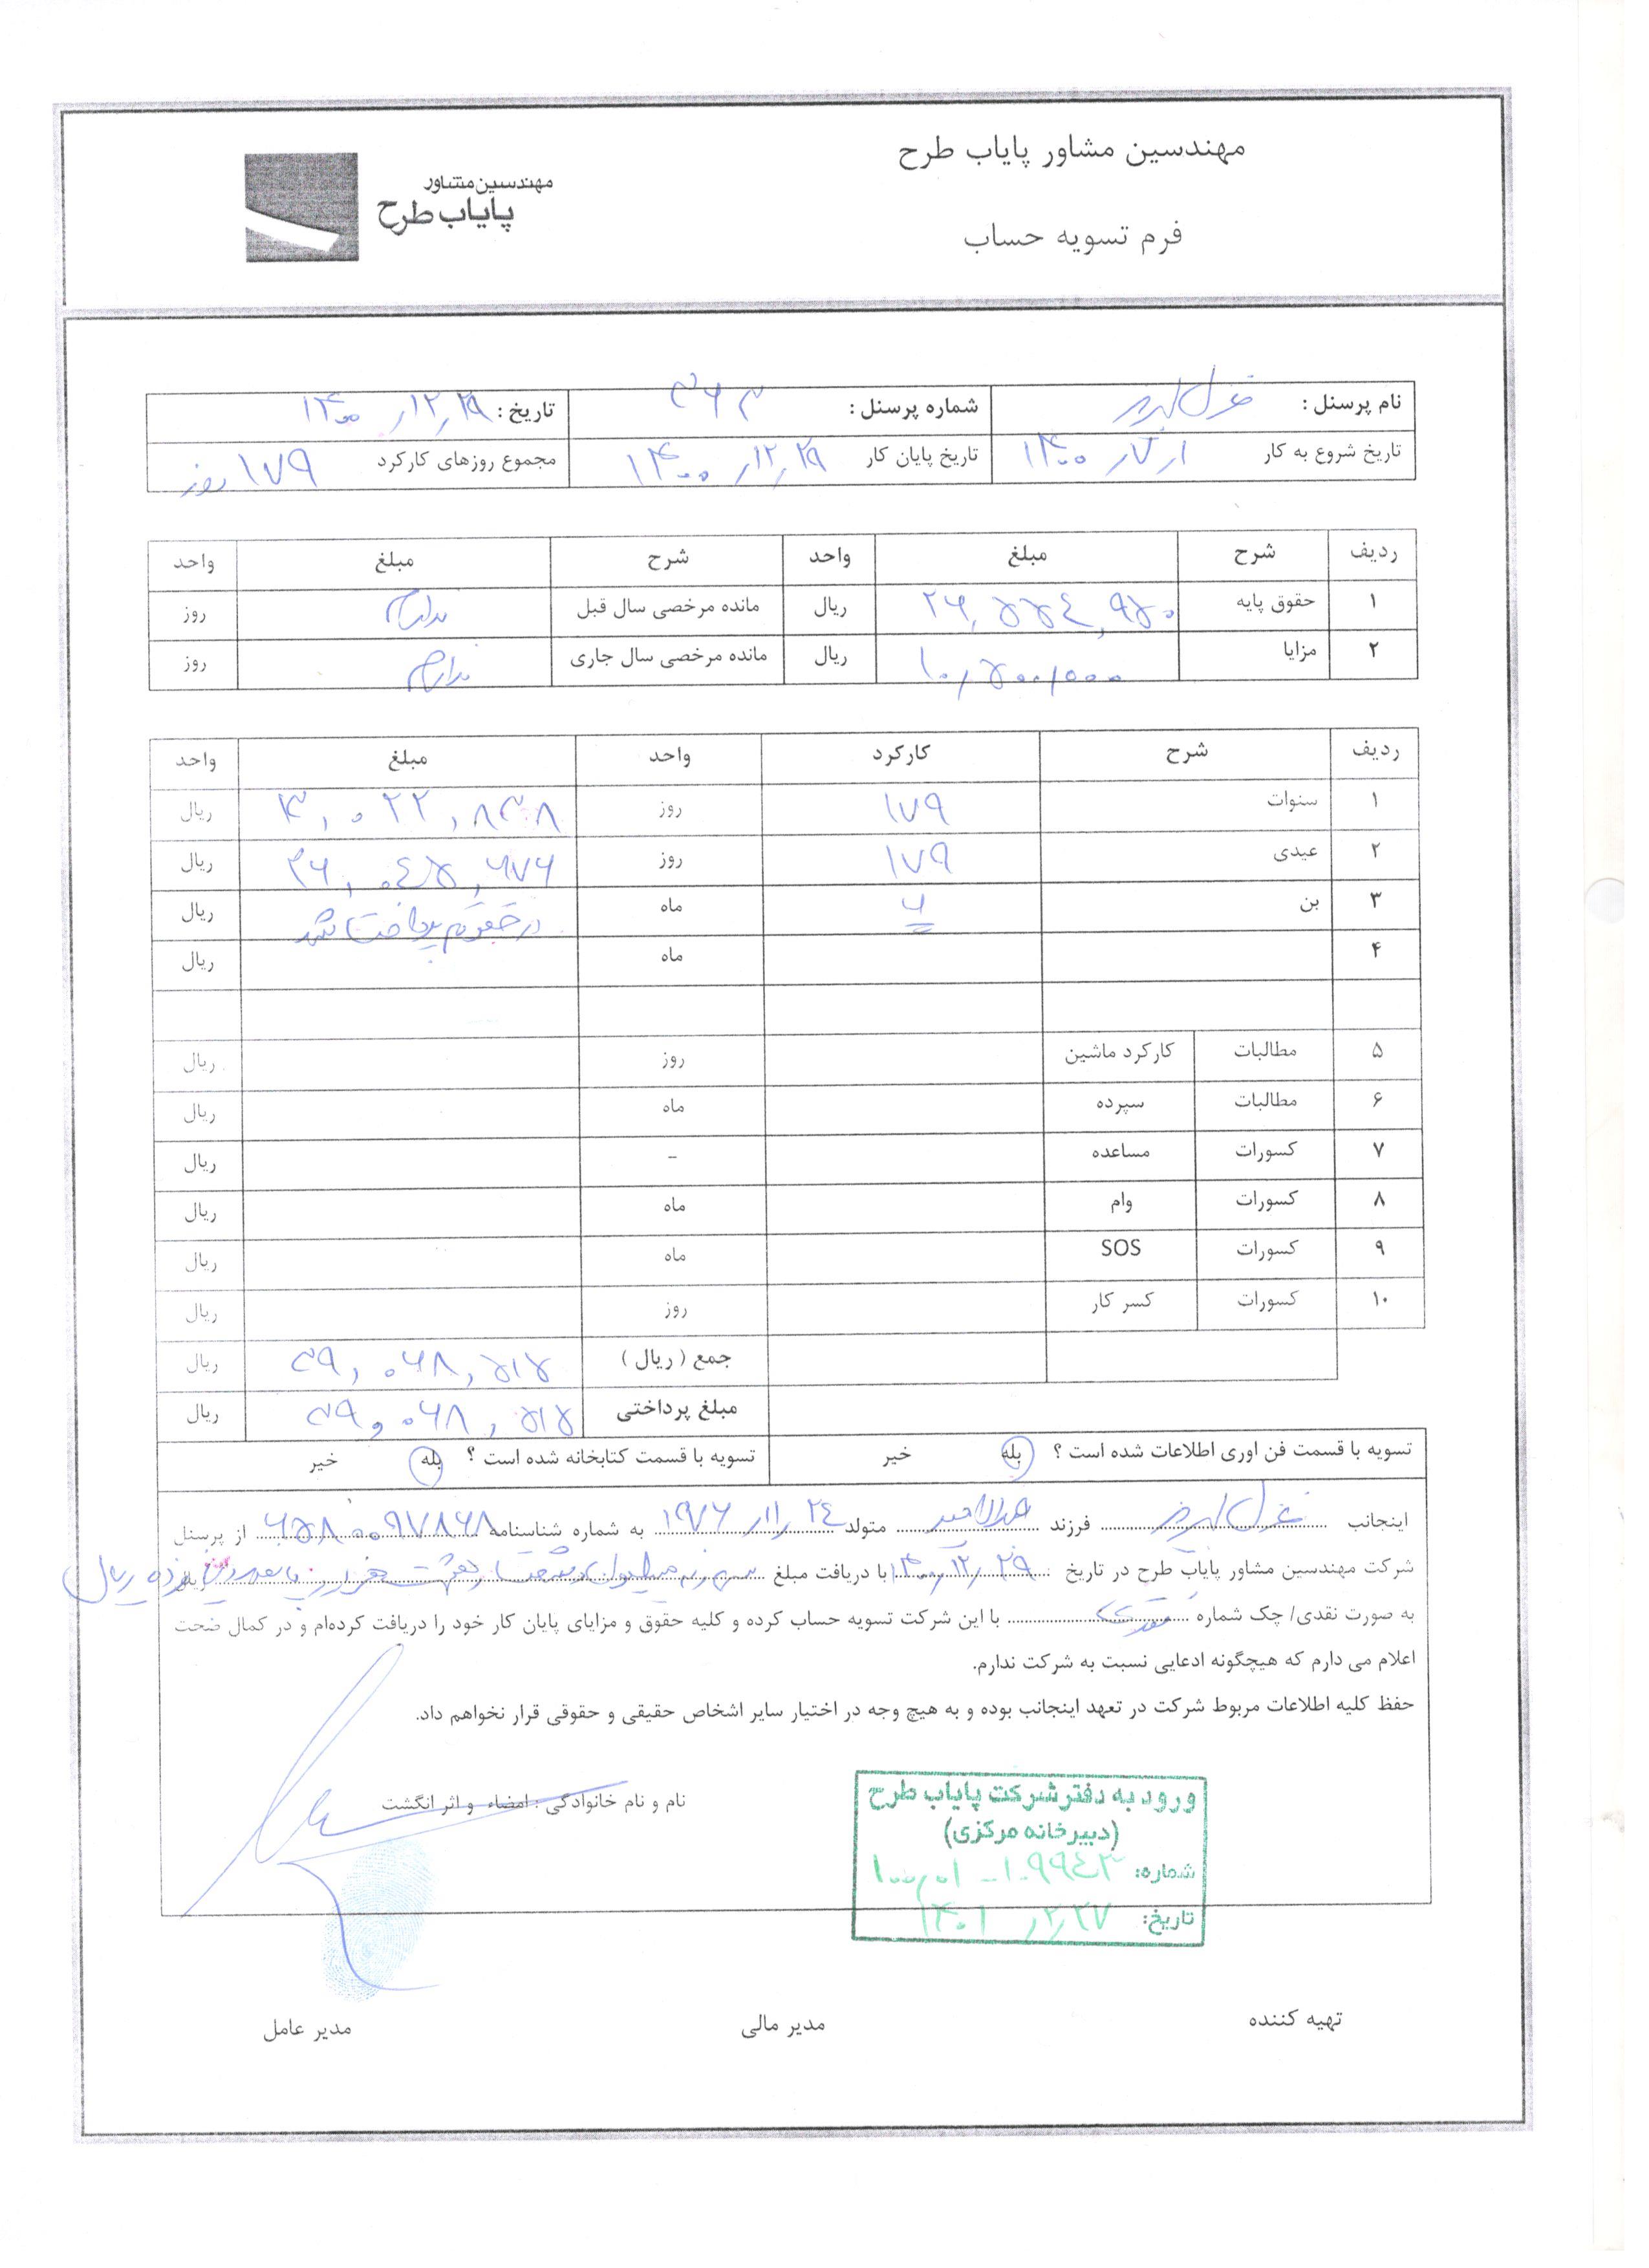 مهندسین مشاور پایاب طرح
مهندسین مشاور
پایاب طرح
فرم تسویه حساب
نام پرسنل : غزل شماره پرسنل : ۳۶۳ تاریخ : ۱۴۰۰,۱۲,۲۹
تاریخ شروع به کار ۱۴۰۰,۷,۱ تاریخ پایان کار ۱۴۰۰,۱۲,۲۹ مجموع روزهای کارکرد ۱۷۹ روز
ردیف شرح مبلغ واحد شرح مبلغ واحد
۱ حقوق پایه ۲۶,۵۵۴,۹۵۰ ریال مانده مرخصی سال قبل ندارم روز
۲ مزایا ۱۰,۵۰۰,۰۰۰ ریال مانده مرخصی سال جاری ندارم روز
ردیف شرح کارکرد واحد مبلغ واحد
۱ سنوات ۱۷۹ روز ۱۳,۰۲۲,۸۳۸ ریال
۲ عیدی ۱۷۹ روز ۲۶,۰۴۵,۶۷۶ ریال
۳ بن ۶ ماه در حقوقم پرداخت شد ریال
۴ ماه ریال
۵ مطالبات کارکرد ماشین روز ریال
۶ مطالبات سپرده ماه ریال
۷ کسورات مساعده – ریال
۸ کسورات وام ماه ریال
۹ کسورات SOS ماه ریال
۱۰ کسورات کسر کار روز ریال
جمع ( ریال ) ۳۹,۰۶۸,۵۱۵ ریال
مبلغ پرداختی ۳۹,۰۶۸,۵۱۵ ریال
تسویه با قسمت فن اوری اطلاعات شده است ؟ بله خیر تسویه با قسمت کتابخانه شده است ؟ بله خیر
اینجانب غزل فرزند متولد ۱۹۷۶,۱۱,۲۴ به شماره شناسنامه ۶۵۸۰۰۹۷۸۶۸ از پرسنل
شرکت مهندسین مشاور پایاب طرح در تاریخ ۱۴۰۰,۱۲,۲۹ با دریافت مبلغ سی و نه میلیون و شصت و هشت هزار و پانصد و پانزده ریال ریال
به صورت نقدی/ چک شماره نقدی با این شرکت تسویه حساب کرده و کلیه حقوق و مزایای پایان کار خود را دریافت کرده‌ام و در کمال صحت
اعلام می دارم که هیچگونه ادعایی نسبت به شرکت ندارم.
حفظ کلیه اطلاعات مربوط شرکت در تعهد اینجانب بوده و به هیچ وجه در اختیار سایر اشخاص حقیقی و حقوقی قرار نخواهم داد.
نام و نام خانوادگی : امضاء و اثر انگشت
ورود به دفتر شرکت پایاب طرح
(دبیرخانه مرکزی)
شماره:
تاریخ: ۱۴۰۱,۲,۲۷
تهیه کننده مدیر مالی مدیر عامل